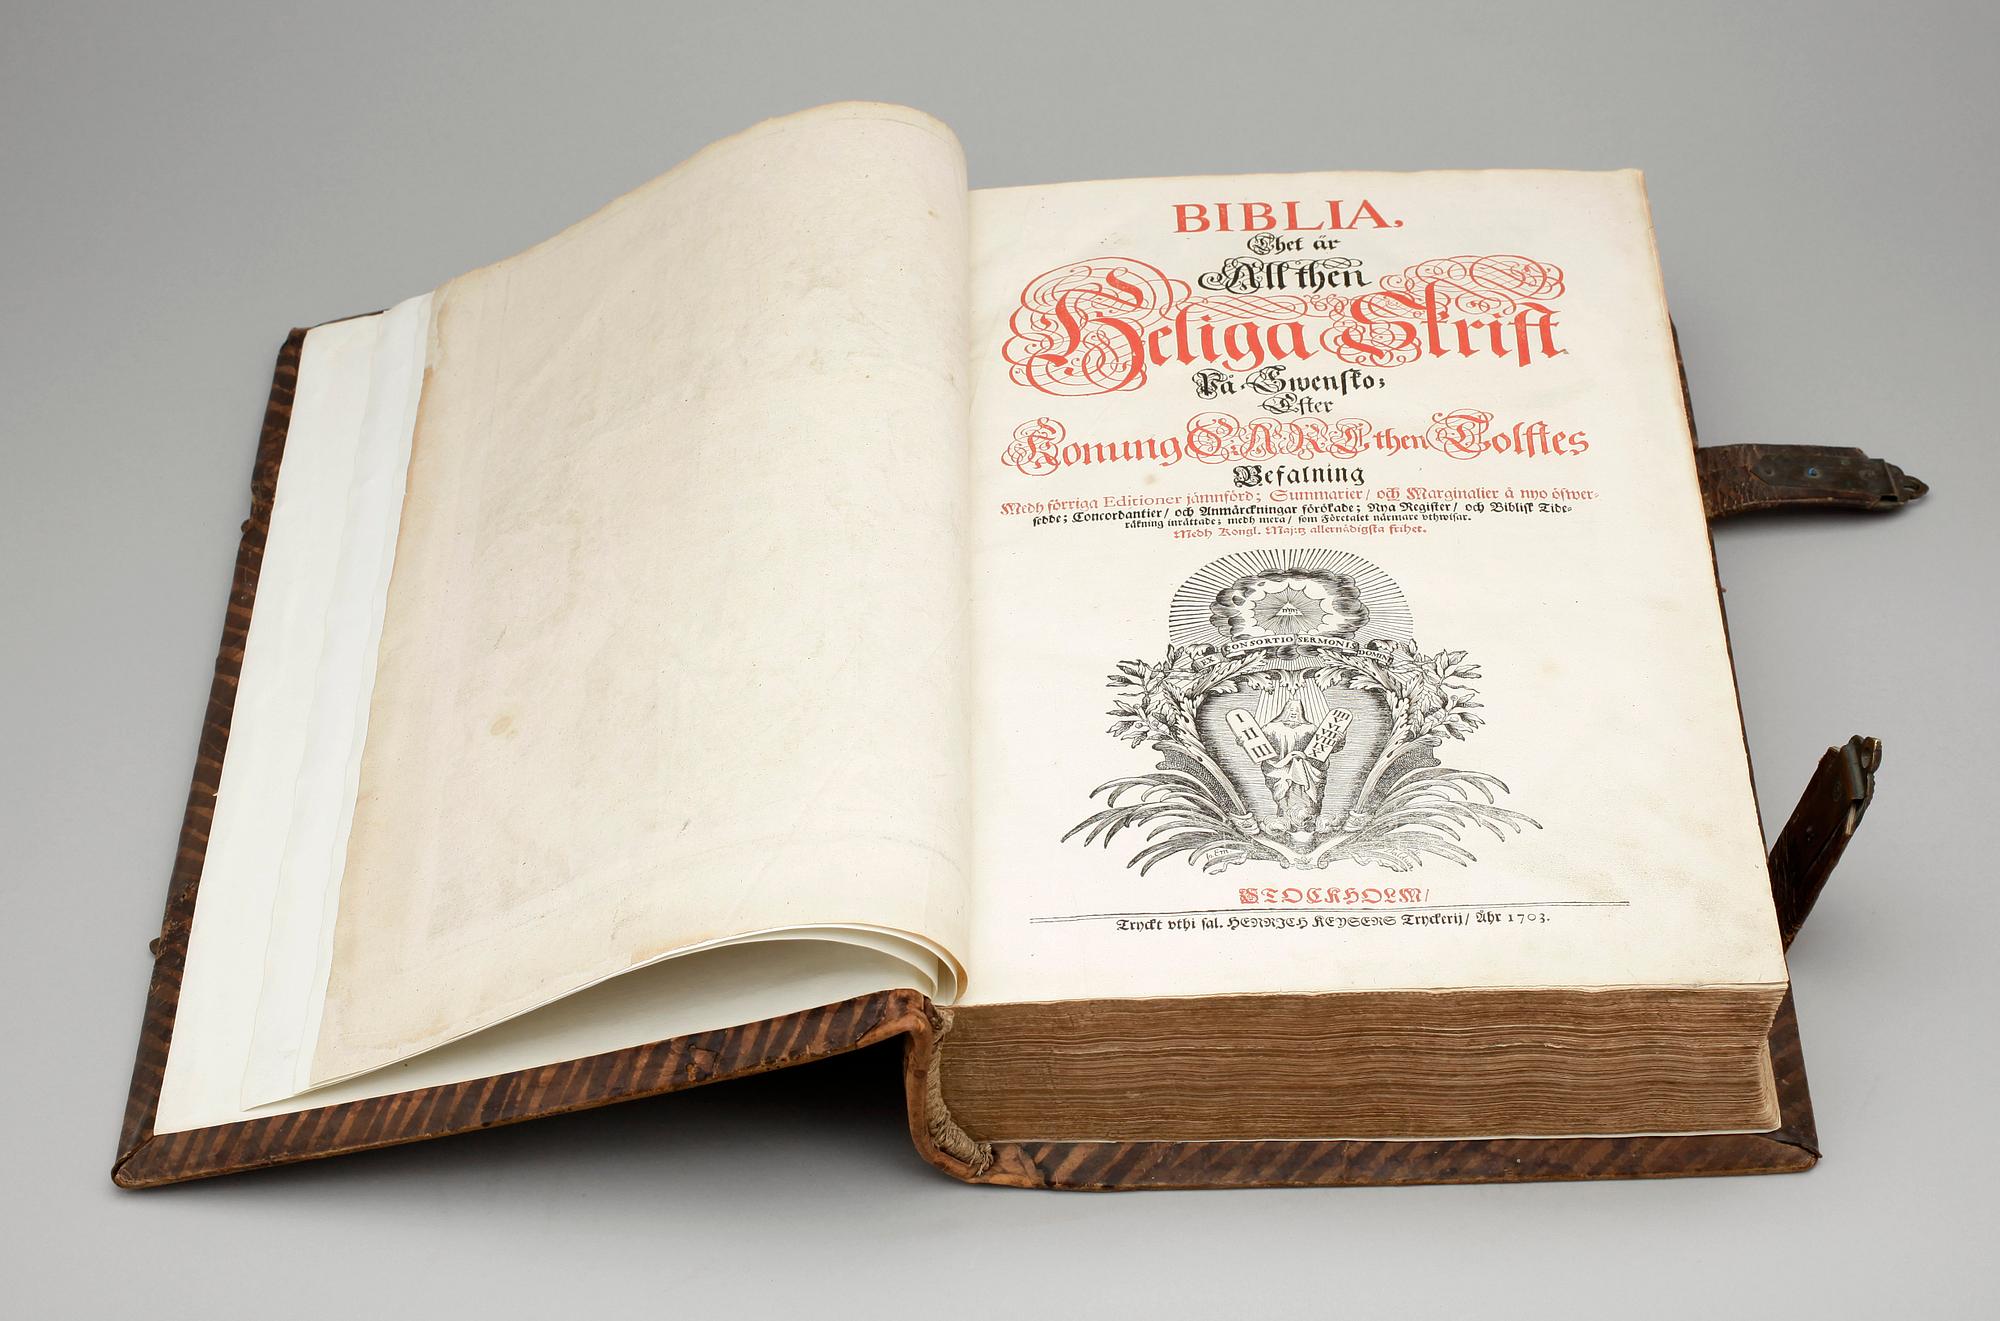 BIBLIA,
Thet är
All then
Heliga Skrift
På Swensko;
Efter
Konung CARL then Tolftes
Befalning
Medh förriga Editioner jämnförd; Summarier/ och Marginalier å nyo öfwer-
sedde; Concordantier/ och Anmärckningar förökade; Nya Register/ och Biblisk Tide-
räkning inrättade; medh mera/ som Företalet närmare vthwisar.
Medh Kongl. Maj:tz allernådigsta frihet.
EX CONSORTIO SERMONIS DOMINI
I II III
IIII VI VII VIII IX X
STOCKHOLM/
Tryckt vthi sal. HENRICH KEYSERS Tryckerij/ Åhr 1703.